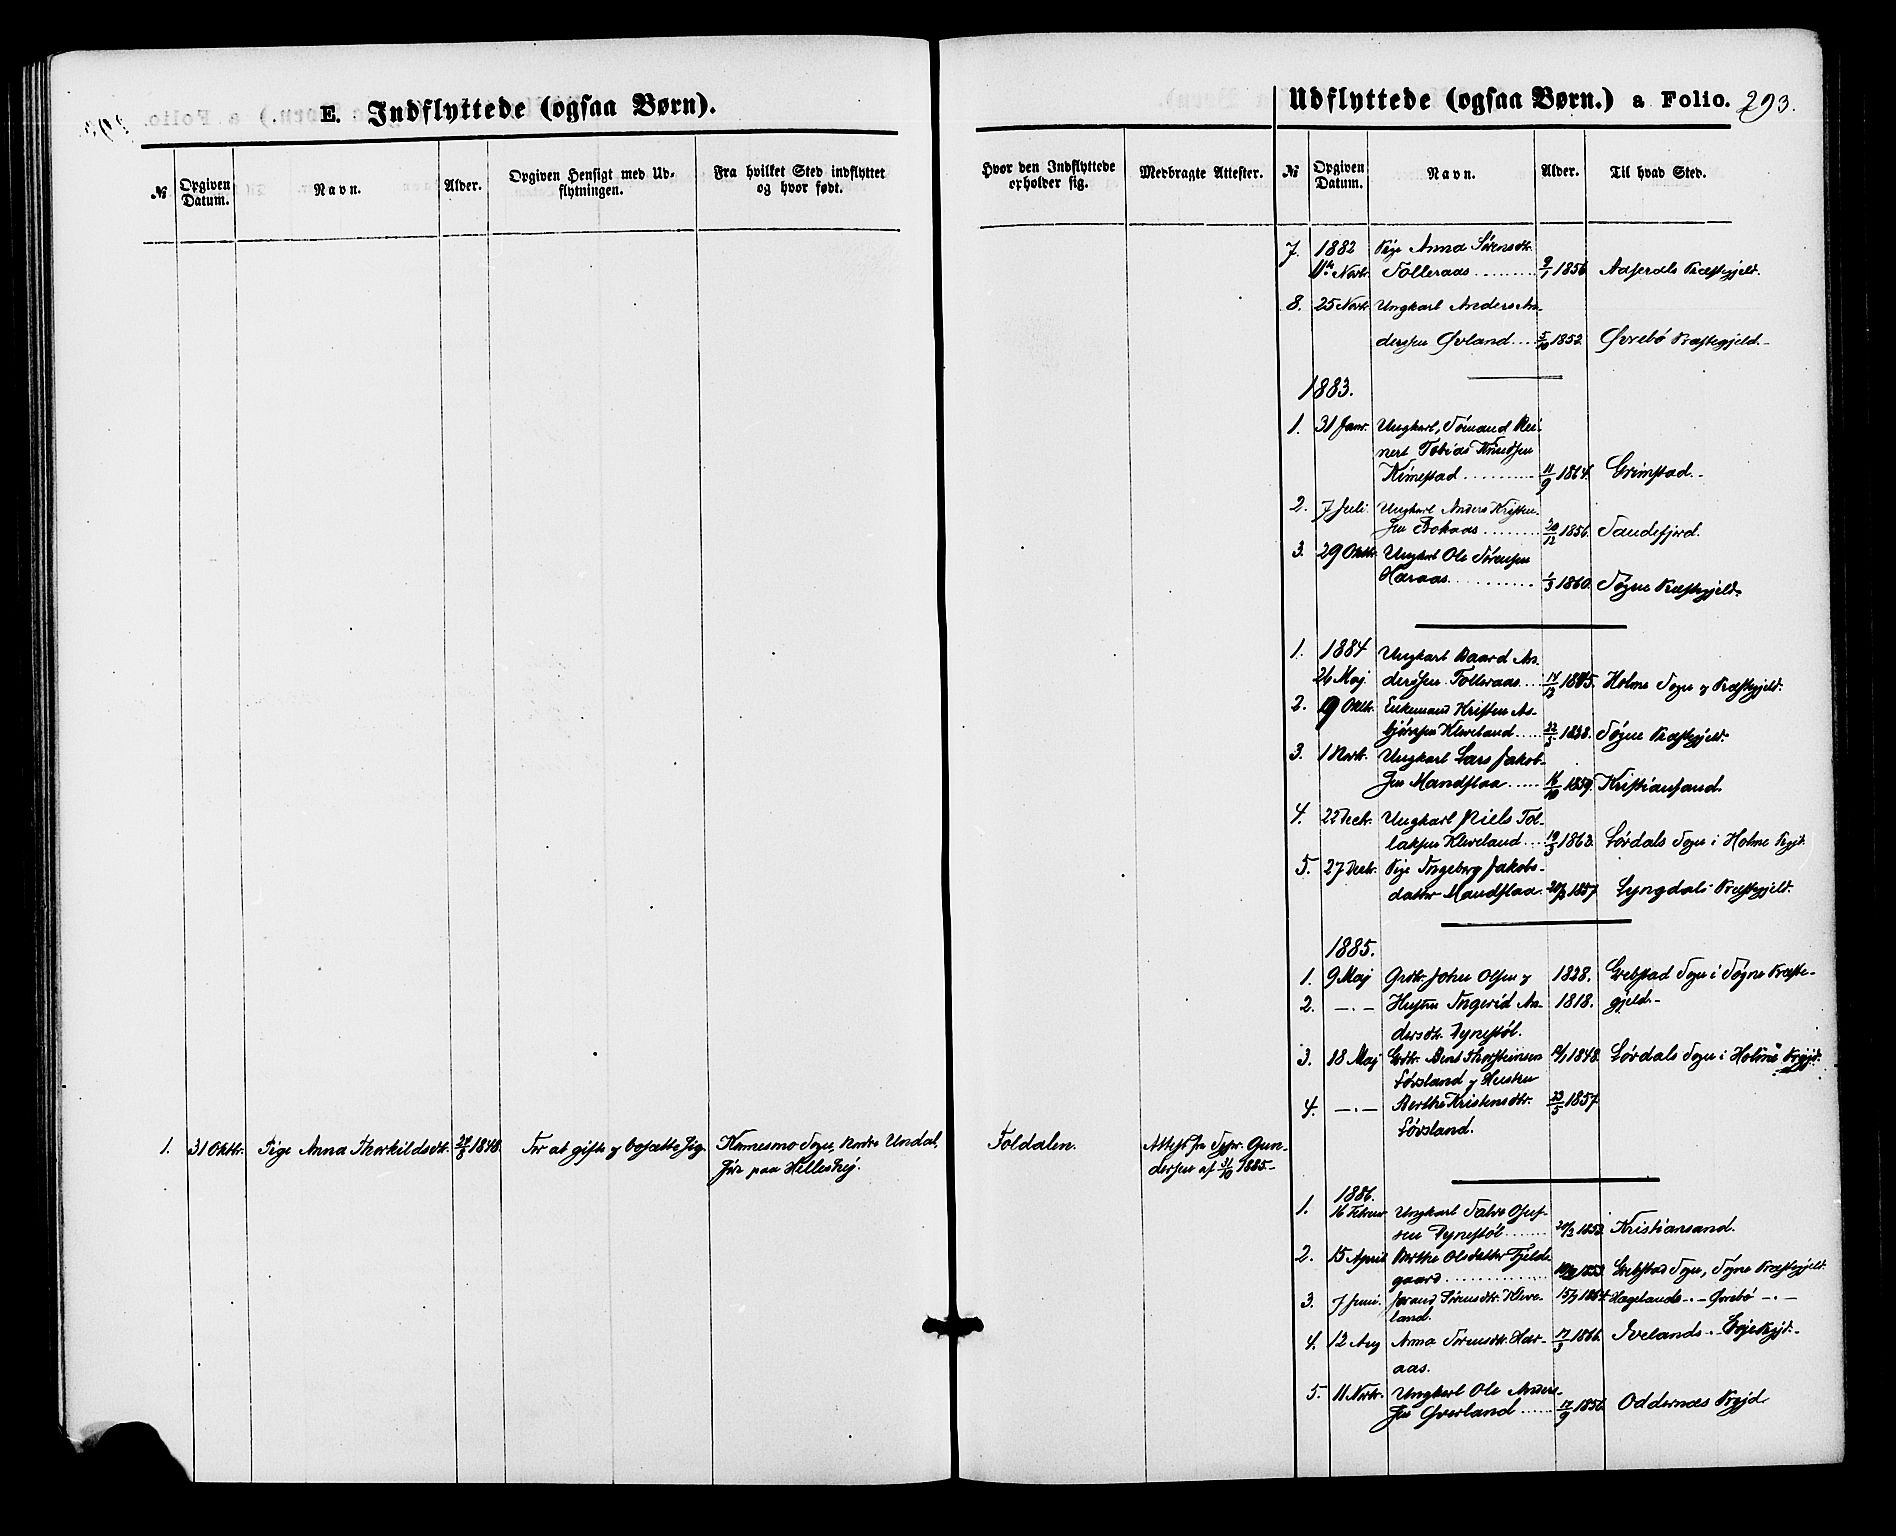 E. Indflyttede (ogsaa Børn).
№
Opgiven Datum.
Navn.
Alder.
Opgiven Hensigt med Udflytningen.
Fra hvilket Sted indflyttet og hvor født.
Hvor den Indflyttede opholder sig.
Medbragte Attester.
1. 31 Oktbr. Pige Anna Thorkildsdtr. 1848. For at gifte og bosætte sig. Sogn, Nordre Undal,
Foldalen. Attest fra Sgpr. Gun-
dersen af 31/10 1885.-
Udflyttede (ogsaa Børn.) a Folio. 293.
№
Opgiven Datum.
Navn.
Alder.
Til hvad Sted.
7. 1882 Pige Anna Sørensdtr.
11te Novbr. Tolleraas 9/1 1856 Aaserals Præstegjeld.
8. 25 Novbr Ungkarl Anders An-
dersen Øvland 5/10 1852. Øvrebø Præstegjeld.-
1883.
1. 31 Janr. Ungkarl, Sømand Rei-
nert Tobias Knudsen
Kimestad 11/9 1864. Grimstad.-
2. 7 Juli Ungkarl Anders Kristen-
sen Bokaas 30/12 1856. Sandefjord.
3. 29 Oktbr. Ungkarl Ole Sørensen
Haraas 1/3 1860. Søgne Præstegjeld.
1. 1884 Ungkarl Baard An-
26 Maj. dersen Tolleraas 1845. Holme Sogn og Præstegjeld.
2. 19 Oktbr. Enkemand Kristen As-
bjørnsen Kleveland 22/5 1838. Søgne Præstegjeld.
3. 1 Novbr. Ungkarl Lars Jakob-
sen Mandflaa 16/10 1859. Kristiansand.
4. 22 Decbr. Ungkarl Niels Tol-
laksen Kleveland 19/3 1863. Lørdals Sogn i Holme Pgjd.
5. 27 Decbr. Pige Ingeborg Jakobs-
datter Mandflaa 1857. Lyngdals Præstegjeld.
1885.
1. 9 Maj Grdbr. John Olsen og 1828. Grebstad Sogn i Søgne Præste-
2. -.- Hustru Ingerid An- 1818. gjeld.-
dersdtr. Dynestøl.
3. 18 Maj Grdbr. Bent Thorsteinsen 1848. Lørdals Sogn i Holme Pgjd.
Løvsland og Hustru
4. -.- Berthe Kristensdtr. 23/5 1857.
Løvsland.
1886.
1. 16 Februar Ungkarl Salve Oluf-
sen Dynestøl 20/2 1853. Kristiansand.
2. 15 April Berthe Olsdatter Fjelds-
gaard 1853. Grebstad Sogn, Søgne Præstegjeld.
3. 7 Juni. Jorand Sørensdtr. Kleve- 15/9 1864. Hægelands -.- Øvrebø -.-
land.
4. 12 Aug Anna Sørensdtr. Har- 17/3 1866. Ivelands -.- Evje Pgjd.-
aas.
5. 11 Novbr. Ungkarl Ole Anders-
sen Øverland 17/9 1856. Oddernæs Pgjd.